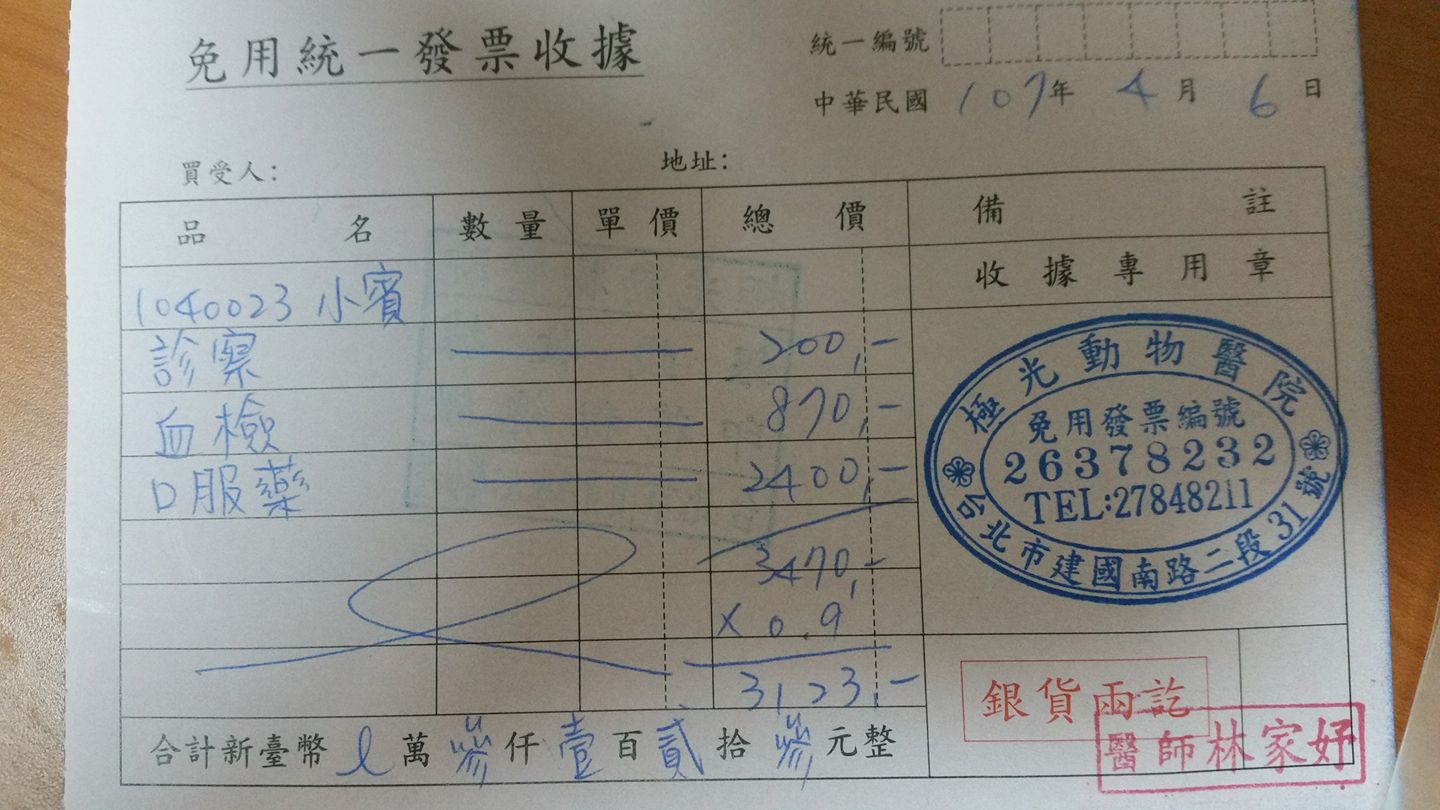 免用統一發票收據
統一編號
中華民國 107年 4月 6日
買受人： 地址：
品名 數量 單價 總價 備註
收據專用章
1040023 小賓
診察 200,-
血檢 870,-
口服藥 2400,-
3470,-
x 0.9
3123,-
極光動物醫院
免用發票編號
26378232
TEL:27848211
台北市建國南路二段31號
銀貨兩訖
醫師林家妤
合計新臺幣 萬 參仟 壹百 貳拾 參元整